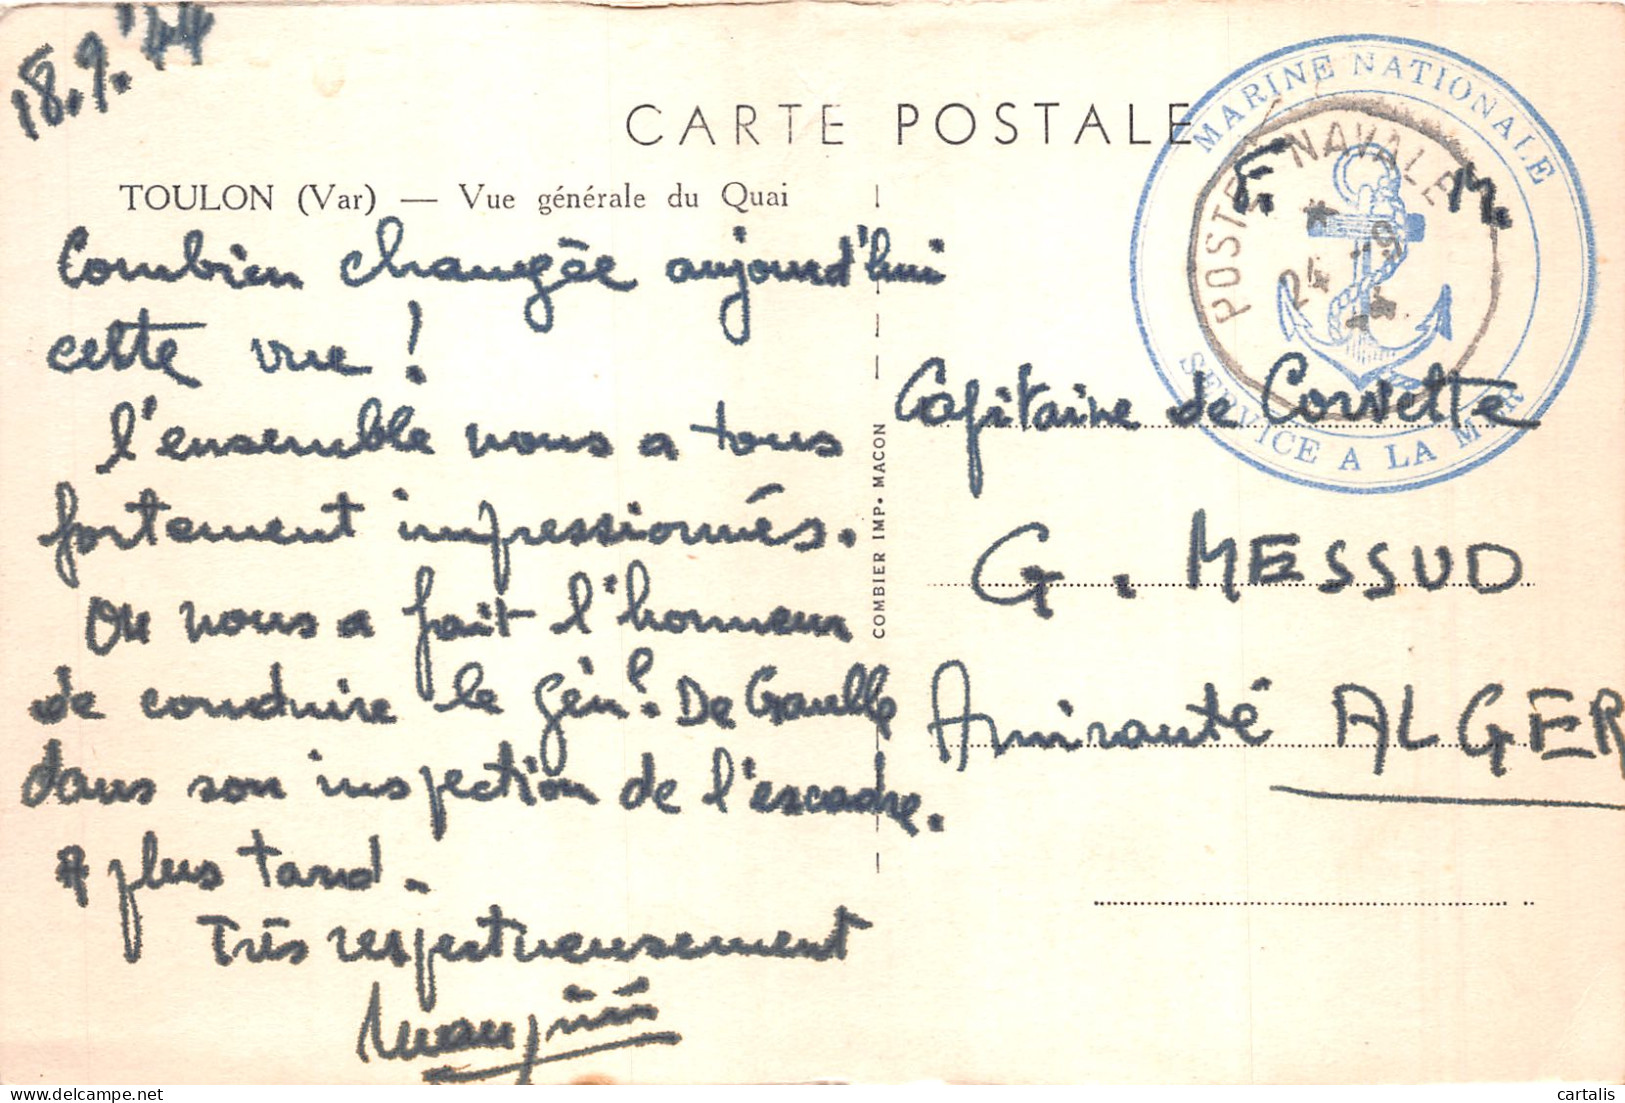 18.9.'44
CARTE POSTALE
TOULON (Var) — Vue générale du Quai
Combien changée aujourd'hui
cette vue !
l'ensemble nous a tous
fortement impressionnés.
On nous a fait l'honneur
de conduire le Génl. De Gaulle
dans son inspection de l'escadre.
A plus tard.
Très respectueusement
COMBIER IMP. MACON
MARINE NATIONALE
SERVICE A LA MER
POSTE NAVALE
24 -9
44
F. M.
Capitaine de Corvette
G. MESSUD
Amirauté ALGER
cartalis.com